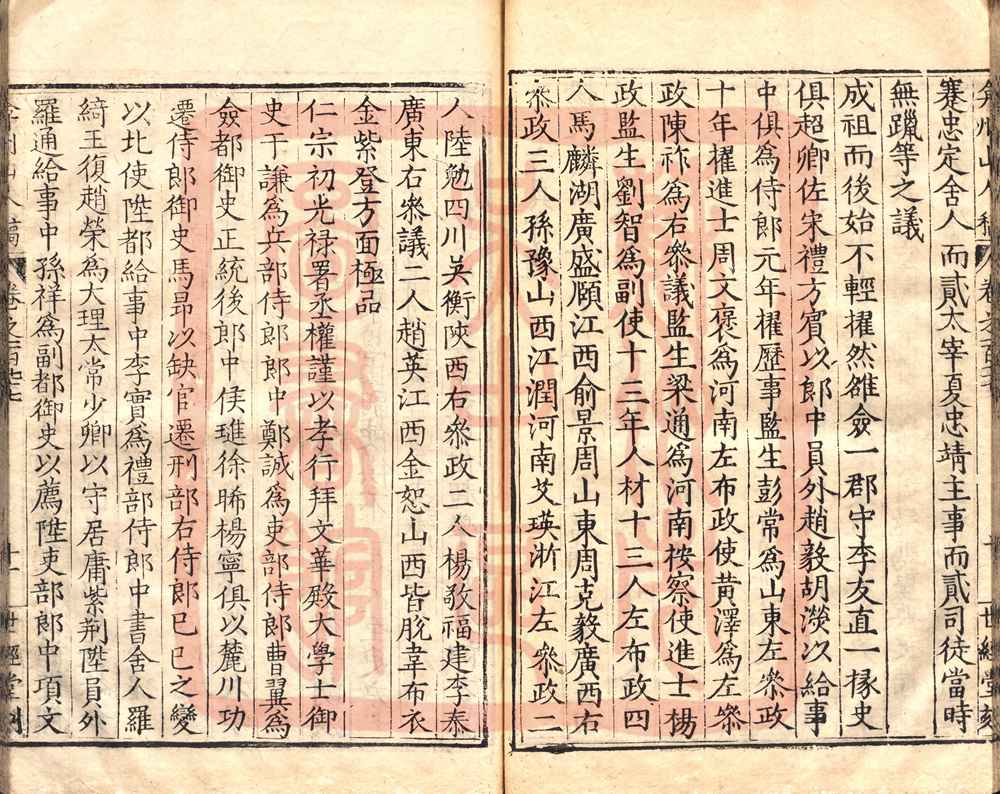 弇州山人稿 卷之一百 十 世經堂刻
蹇忠定舍人而貳太宰夏忠靖主事而貳司徒當時
無躐等之議
成祖而後始不輕擢然雒僉一郡守李友直一掾史
俱超卿佐宋禮方賓以郎中員外趙毅胡濙以給事
中俱為侍郎元年擢歷事監生彭常為山東左叅政
十年擢進士周文褒為河南左布政使黃澤為左叅
政陳祚為右叅議監生梁通為河南按察使進士楊
政監生劉智為副使十三年人材十三人左布政四
人馬麟湖廣盛頤江西俞景周山東周克毅廣西右
叅政三人孫豫山西江潤河南艾瑛浙江左叅政二
人陸勉四川吳衡陝西右叅政二人楊敬福建李泰
廣東右叅議二人趙英江西金恕山西皆脫韋布衣
金紫登方面極品
仁宗初光祿署丞權謹以孝行拜文華殿大學士御
史于謙為兵部侍郎郎中鄭誠為吏部侍郎曹翼為
僉都御史正統後郎中侯璡徐晞楊寧俱以麓川功
遷侍郎御史馬昂以缺官遷刑部右侍郎己巳之變
以北使陞都給事中李實為禮部侍郎中書舍人羅
綺王復趙榮為大理太常少卿以守居庸紫荊陞員外
羅通給事中孫祥為副都御史以薦陞吏部郎中項文
弇州山人稿 卷之一百 十一 世經堂刻